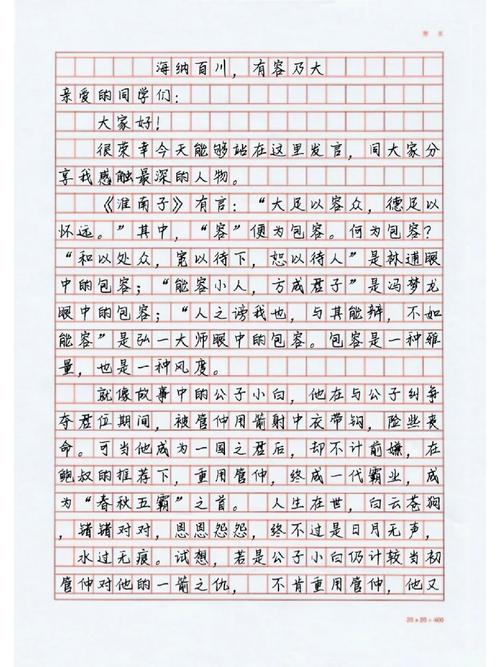 海纳百川，有容乃大
亲爱的同学们：
大家好！
很荣幸今天能够站在这里发言，同大家分
享我感触最深的人物。
《淮南子》有言：“大足以容众，德足以
怀远。”其中，“容”便为包容。何为包容？
“和以处众，宽以待下，恕以待人”是林逋眼
中的包容；“能容小人，方成君子”是冯梦龙
眼中的包容；“人之谤我也，与其能辩，不如
能容”是弘一大师眼中的包容。包容是一种雅
量，也是一种风度。
就像故事中的公子小白，他在与公子纠争
夺君位期间，被管仲用箭射中衣带钩，险些丧
命。可当他成为一国之君后，却不计前嫌，在
鲍叔的推荐下，重用管仲，终成一代霸业，成
为“春秋五霸”之首。 人生在世，白云苍狗
，错错对对，恩恩怨怨，终不过是日月无声，
水过无痕。试想，若是公子小白仍计较当初
管仲对他的一箭之仇， 不肯重用管仲，他又
20×20=400